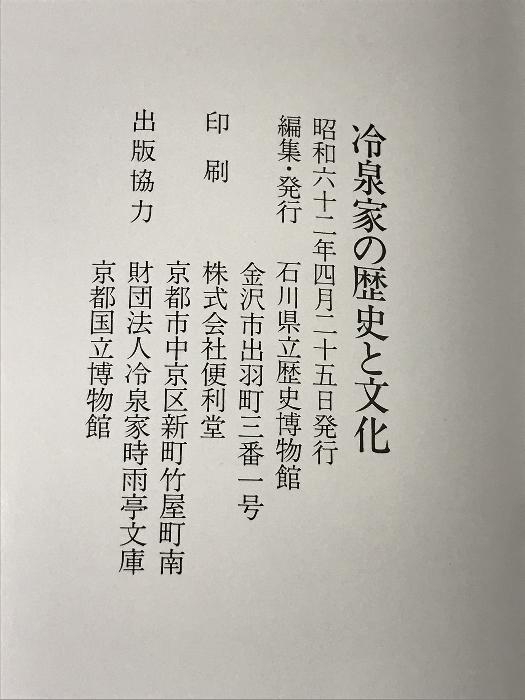 冷泉家の歴史と文化
昭和六十二年四月二十五日発行
編集・発行　石川県立歴史博物館
金沢市出羽町三番一号
印刷　株式会社便利堂
京都市中京区新町竹屋町南
出版協力　財団法人冷泉家時雨亭文庫
京都国立博物館